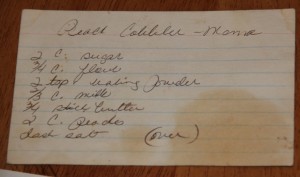 Peach Cobbler - Mama
2 C. sugar
3/4 C. flour
2 tsp baking powder
C. milk
stick butter
2 C. Peaches
dash salt (over)